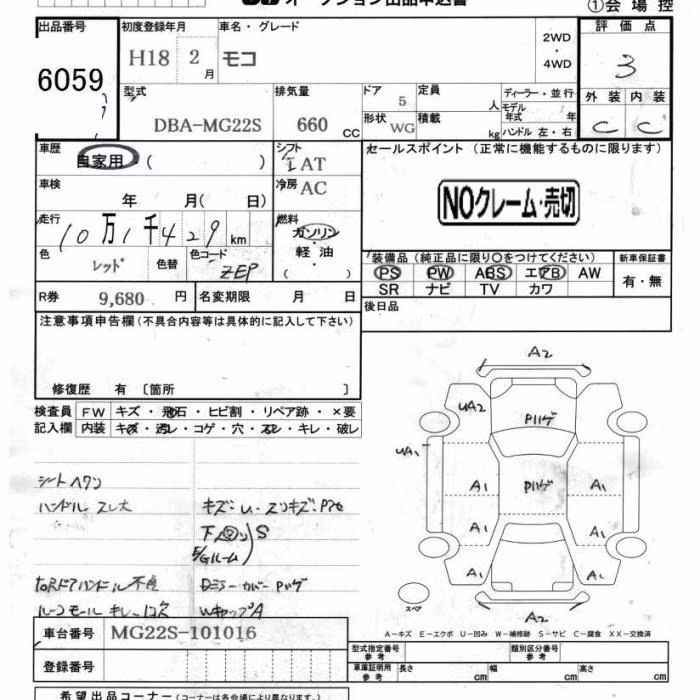 オークション出品申込書
①会場控
出品番号
6059
初度登録年月
H18 2 月
車名・グレード
モコ
2WD
・
4WD
評価点
3
外装 内装
C C
型式
DBA-MG22S
排気量
660 CC
ドア
5
形状
WG
定員
人
積載
kg
ディーラー・並行
モデル
年式 年
ハンドル 左・右
車歴
自家用 ( )
シフト
IAT
セールスポイント (正常に機能するものに限ります)
NOクレーム・売切
車検
年 月( 日)
冷房
AC
走行
10万1千429 km
燃料
ガソリン
・
軽油
( )
色
レッド
色替
色コード
ZEP
装備品 (純正品に限り○をつけてください)
PS PW ABS エアB AW
SR ナビ TV カワ
新車保証書
有・無
R券 9,680 円
名変期限 月 日
後日品
注意事項申告欄 (不具合内容等は具体的に記入して下さい)
修復歴 有 〔箇所 〕
検査員
記入欄
FW キズ・飛石・ヒビ割・リペア跡・×要
内装 キズ・汚レ・コゲ・穴・スレ・キレ・破レ
シートヘタリ
ハンドルスレ大
キズ・U・スリキズ・Pアセ
下 S
E/Gルーム
右Rドアハンドル不良
Dミラーカバー Pハゲ
ルーフモールキレ
WキャップA
A2
UA2
Pハゲ
UA1
A1
Pハゲ
A1
A1
A1
A1
A1
A2
スペア
A−キズ E−エクボ U−凹み W−補修跡 S−サビ C−腐食 XX−交換済
車台番号 MG22S-101016
登録番号
型式指定番号
参考
類別区分番号
参考
車庫証明用
参考
長さ cm
幅 cm
高さ cm
希望出品コーナー (コーナーは各会場により異なります。)